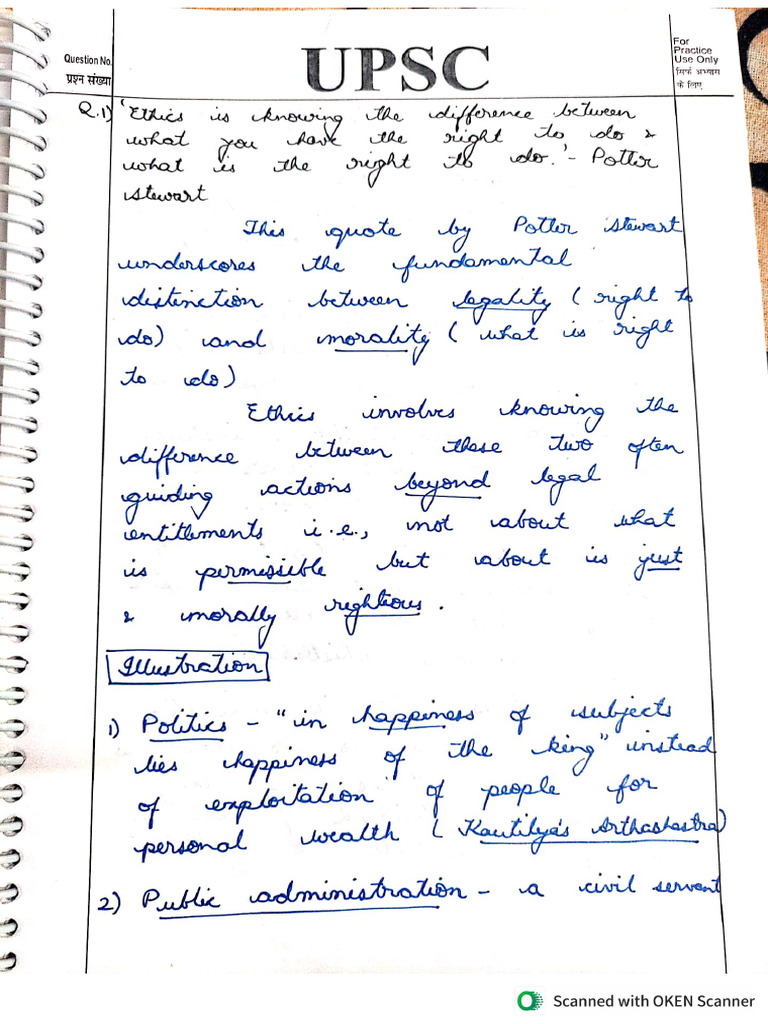 Question No.
प्रश्न संख्या
UPSC
For
Practice
Use Only
सिर्फ अभ्यास
के लिए
Q.1) 'Ethics is knowing the difference between
what you have the right to do &
what is the right to do.' - Potter
Stewart
This quote by Potter Stewart
underscores the fundamental
distinction between legality (right to
do) and morality (what is right
to do)
Ethics involves knowing the
difference between these two often
guiding actions beyond legal
entitlements i.e., not about what
is permissible but about is just
& morally rightious.
Illustration
1) Politics - "in happiness of subjects
lies happiness of the king" instead
of exploitation of people for
personal wealth (Kautilya's Arthashastra)
2) Public administration - a civil servant
Scanned with OKEN Scanner